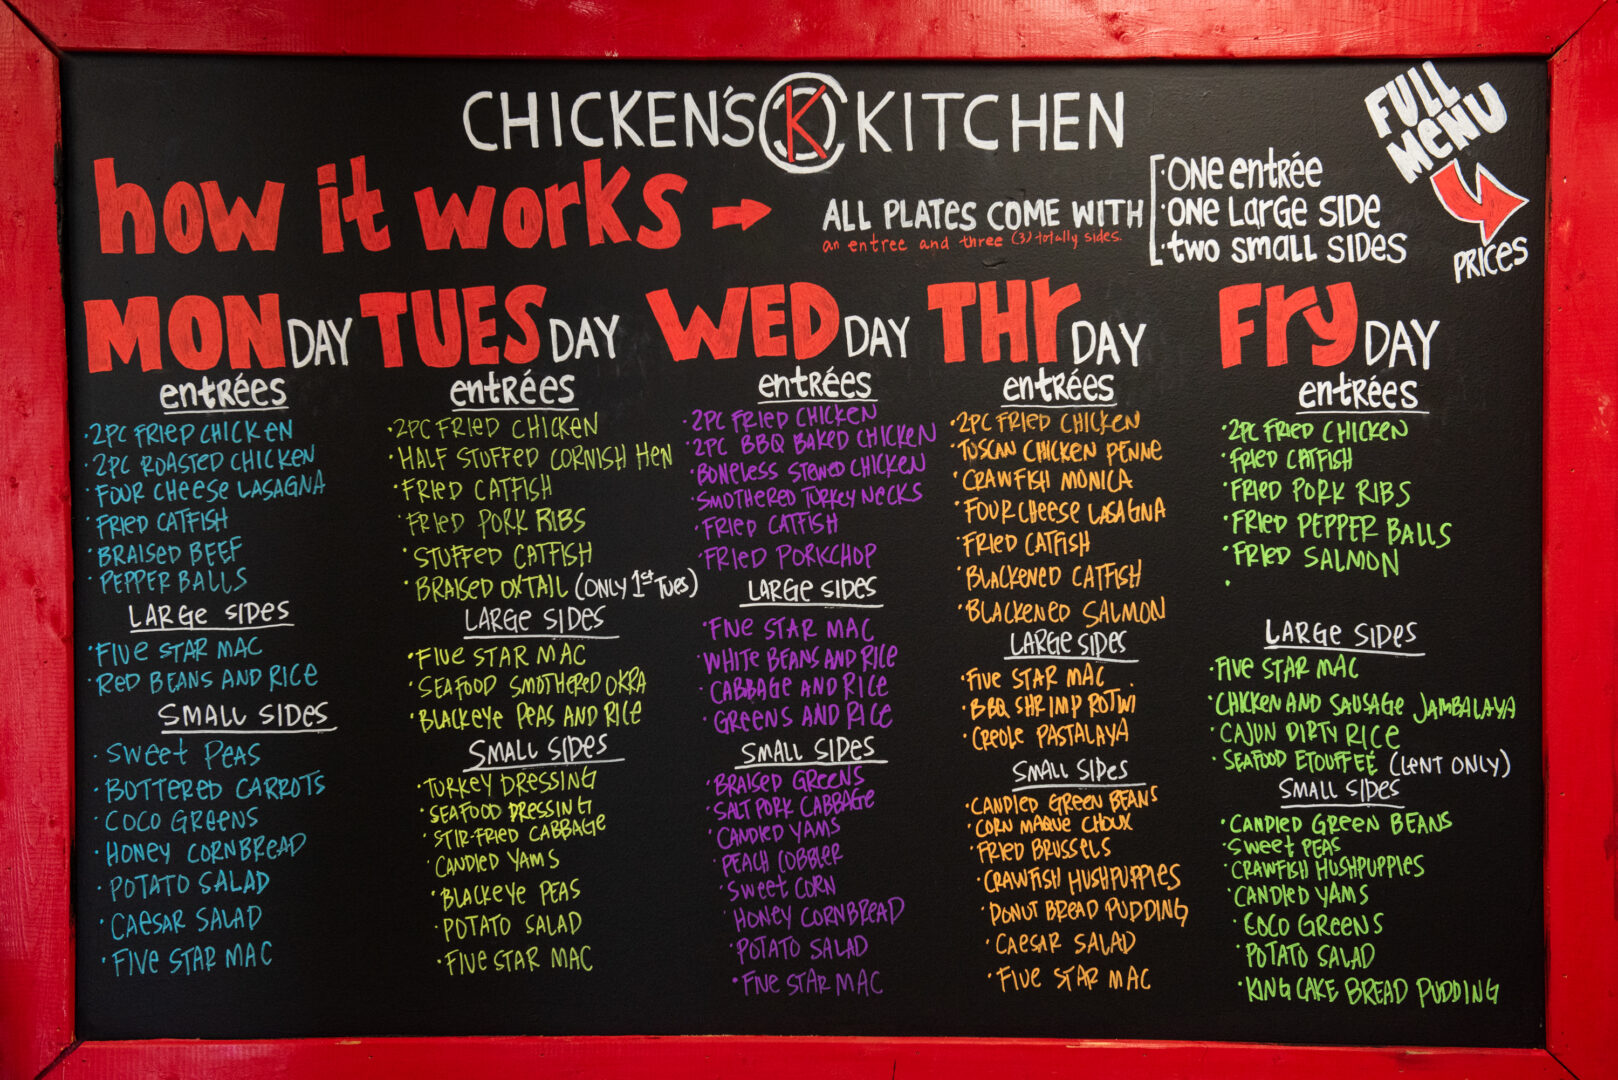 CHICKEN'S K KITCHEN
FULL MENU
PRICES
how it works
ALL PLATES COME WITH
an entree and three (3) totally sides.
· ONE entrée
· ONE Large SIDE
· two small sides
MONDAY
entrées
· 2PC FRIED CHICKEN
· 2PC ROASTED CHICKEN
· FOUR CHEESE LASAGNA
· FRIED CATFISH
· BRAISED BEEF
· PEPPER BALLS
LARGE SIDES
· FIVE STAR MAC
· RED BEANS AND RICE
SMALL SIDES
· SWEET PEAS
· BOTTERED CARROTS
· COCO GREENS
· HONEY CORNBREAD
· POTATO SALAD
· CAESAR SALAD
· FIVE STAR MAC
TUESDAY
entrées
· 2PC FRIED CHICKEN
· HALF STUFFED CORNISH HEN
· FRIED CATFISH
· FRIED PORK RIBS
· STUFFED CATFISH
· BRAISED OXTAIL (ONLY 1st TUES)
LARGE SIDES
· FIVE STAR MAC
· SEAFOOD SMOTHERED OKRA
· BLACKEYE PEAS AND RICE
SMALL SIDES
· TURKEY DRESSING
· SEAFOOD DRESSING
· STIR-FRIED CABBAGE
· CANDIED YAMS
· BLACKEYE PEAS
· POTATO SALAD
· FIVE STAR MAC
WEDDAY
entrées
· 2PC FRIED CHICKEN
· 2PC BBQ BAKED CHICKEN
· BONELESS STEWED CHICKEN
· SMOTHERED TURKEY NECKS
· FRIED CATFISH
· FRIED PORKCHOP
LARGE SIDES
· FIVE STAR MAC
· WHITE BEANS AND RICE
· CABBAGE AND RICE
· GREENS AND RICE
SMALL SIDES
· BRAISED GREENS
· SALT PORK CABBAGE
· CANDIED YAMS
· PEACH COBBLER
· SWEET CORN
· HONEY CORNBREAD
· POTATO SALAD
· FIVE STAR MAC
THrDAY
entrées
· 2PC FRIED CHICKEN
· TUSCAN CHICKEN PENNE
· CRAWFISH MONICA
· FOUR CHEESE LASAGNA
· FRIED CATFISH
· BLACKENED CATFISH
· BLACKENED SALMON
LARGE SIDES
· FIVE STAR MAC
· BBQ SHRIMP ROTWI
· CREOLE PASTALAYA
SMALL SIDES
· CANDIED GREEN BEANS
· CORN MAQUE CHOUX
· FRIED BRUSSELS
· CRAWFISH HUSHPUPPIES
· DONUT BREAD PUDDING
· CAESAR SALAD
· FIVE STAR MAC
FryDAY
entrées
· 2PC FRIED CHICKEN
· FRIED CATFISH
· FRIED PORK RIBS
· FRIED PEPPER BALLS
· FRIED SALMON
·
LARGE SIDES
· FIVE STAR MAC
· CHICKEN AND SAUSAGE JAMBALAYA
· CAJUN DIRTY RICE
· SEAFOOD ETOUFFEÉ (LENT ONLY)
SMALL SIDES
· CANDIED GREEN BEANS
· SWEET PEAS
· CRAWFISH HUSHPUPPIES
· CANDIED YAMS
· COCO GREENS
· POTATO SALAD
· KING CAKE BREAD PUDDING